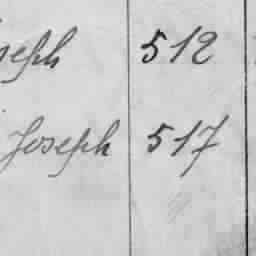 seph 512
Joseph 517